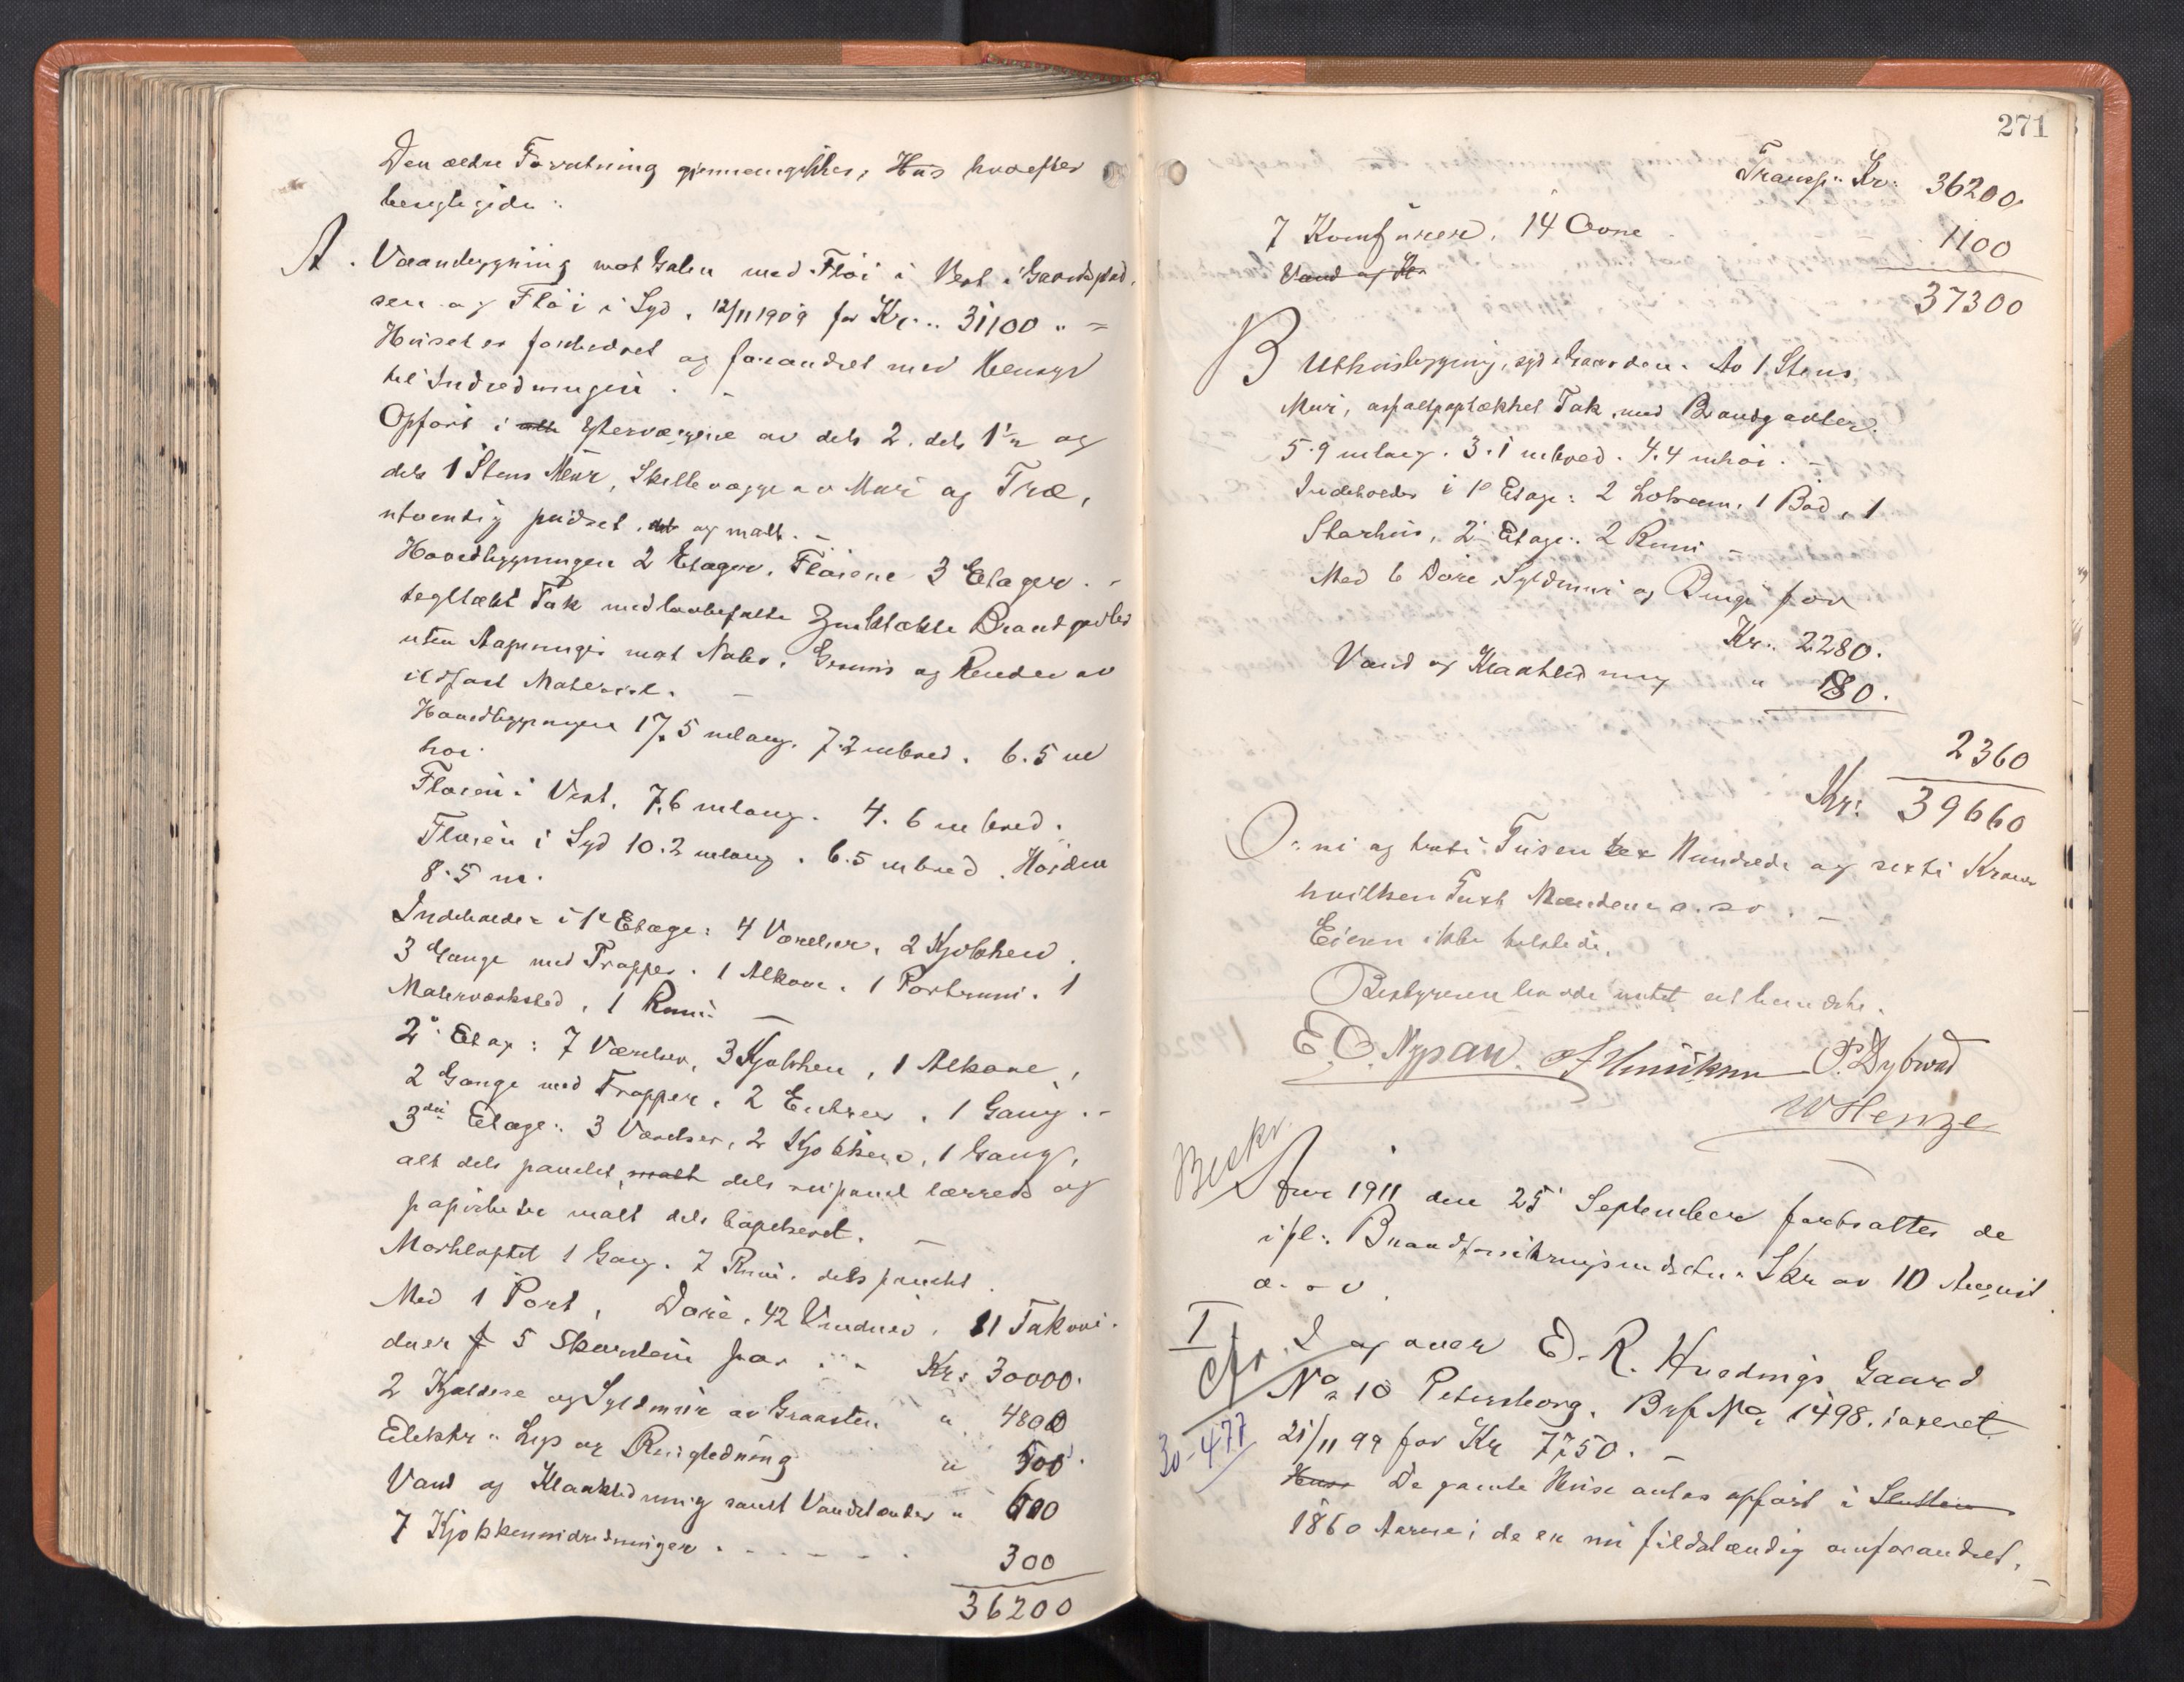 Den ældre Forretning gjennemgikkes, Hus hvorefter
besigtigede:
A. Vaanbygning mot Gaten med Fløi i Vest i Gaardsplad-
sen og Fløi i Syd, 12/11 1909 for Kr: 31100 " =
Huset er forbedret og forandret med Hensyn
til Indredningen. -
Opført i alle Ydervæggene av dels 2. dels 1½ og
dels 1 Stens Mur, Skillevægge av Mur og Træ,
utvendig pudset og malt. -
Hovedbygningen 2 Etager. Fløiene 3 Etager. -
tegltækt Tak med lovbefalte Zinktækte Brandgavler
uten Aapninger mot Nabo. Gesims og Render av
ildfast Materiale. -
Hovedbygningen 17.5 m lang. 7.2 m bred. 6.5 m
høi.
Fløien i Vest. 7.6 m lang. 4.6 m bred.
Fløien i Syd 10.2 m lang. 6.5 m bred. Høiden
8.5 m.
Indeholder i 1ste Etage: 4 Værelser, 2 Kjøkken,
3 Gange med Trapper. 1 Alkove. 1 Portrum. 1
Malerværksted, 1 Rum. -
2den Etage: 7 Værelser, 3 Kjøkken, 1 Alkove,
2 Gange med Trapper. 2 Entreer. 1 Gang. -
3die Etage: 3 Værelser, 2 Kjøkken, 1 Gang,
alt dels panelet, malt dels rupanel lærreds og
papirbetr malt dels tapetseret. -
Mørkloftet 1 Gang. 7 Rum. dels panelet.
Med 1 Port, Døre, 42 Vinduer, 11 Takvin-
duer & 5 Skorstene for . . Kr: 30000.
2 Kjeldere og Syldmur av Graasten " 4800
Elektr: Lys og Ringledning " 500.
Vand og Kloakledning samt Vandklosetter " 600
7 Kjøkkenindredninger . - - - - . 300
36200
271
Transp: Kr: 36200,
7 Komfurer, 14 Ovne . 1100
Vand og Kl
37300
B Uthusbygning, syd i Gaarden. Av 1 Stens
Mur, asfaltpaptækket Tak med Brandgavler.
5.9 m lang. 3.1 m bred. 4.4 m høi. -
Indeholder i 1ste Etage: 2 Lokum, 1 Bod, 1
Skarhus, 2den Etage: 2 Rum -
Med 6 Døre, Syldmur og Binge for
Kr: 2280.
Vand og Kloakledning " 80.
2360
Kr: 39660
O: ni og treti Tusen sex Hundrede og sexti Kroner
hvilken Taxt Mændene a. s. v. -
Eieren ikke tilstede.
Bestyreren havde intet at bemærke.
E. O. Nypan. A Hinriksen P. Dybvad
W Henze
Beskr.
Aar 1911 den 25 September fortsattes de
ifl: Brandforsikringsindretn: Skr av 10 August
a. s. v.
I. I og over E. R. Hvedings Gaard
Cfr. No 10 Petersborg. Brf No 1498, taxeret
30-477 21/11 99 for Kr 7750. -
Huse De gamle Huse antas opført i Slutten
1860 Aarene; de er nu fuldstændig omforandret. -